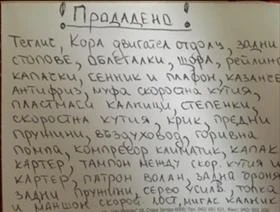 ! Продадено !
Теглич, Кора двигател отдолу, задни
стопове, облегалки, щора, рейлинг
капаски, сенник и плафон, казанче
Антифриз, муфа скоростна кутия,
пластмаси калници, степенки,
скоростна кутия, крик, предни
пружини, въздуховод, горивна
помпа, компресор климатик, капак
картер, тампон между скор. кутия и
картер, патрон волан, задна броня
задни пружини, серво усилв, топка
и маншон скорой. лост, мигач калник